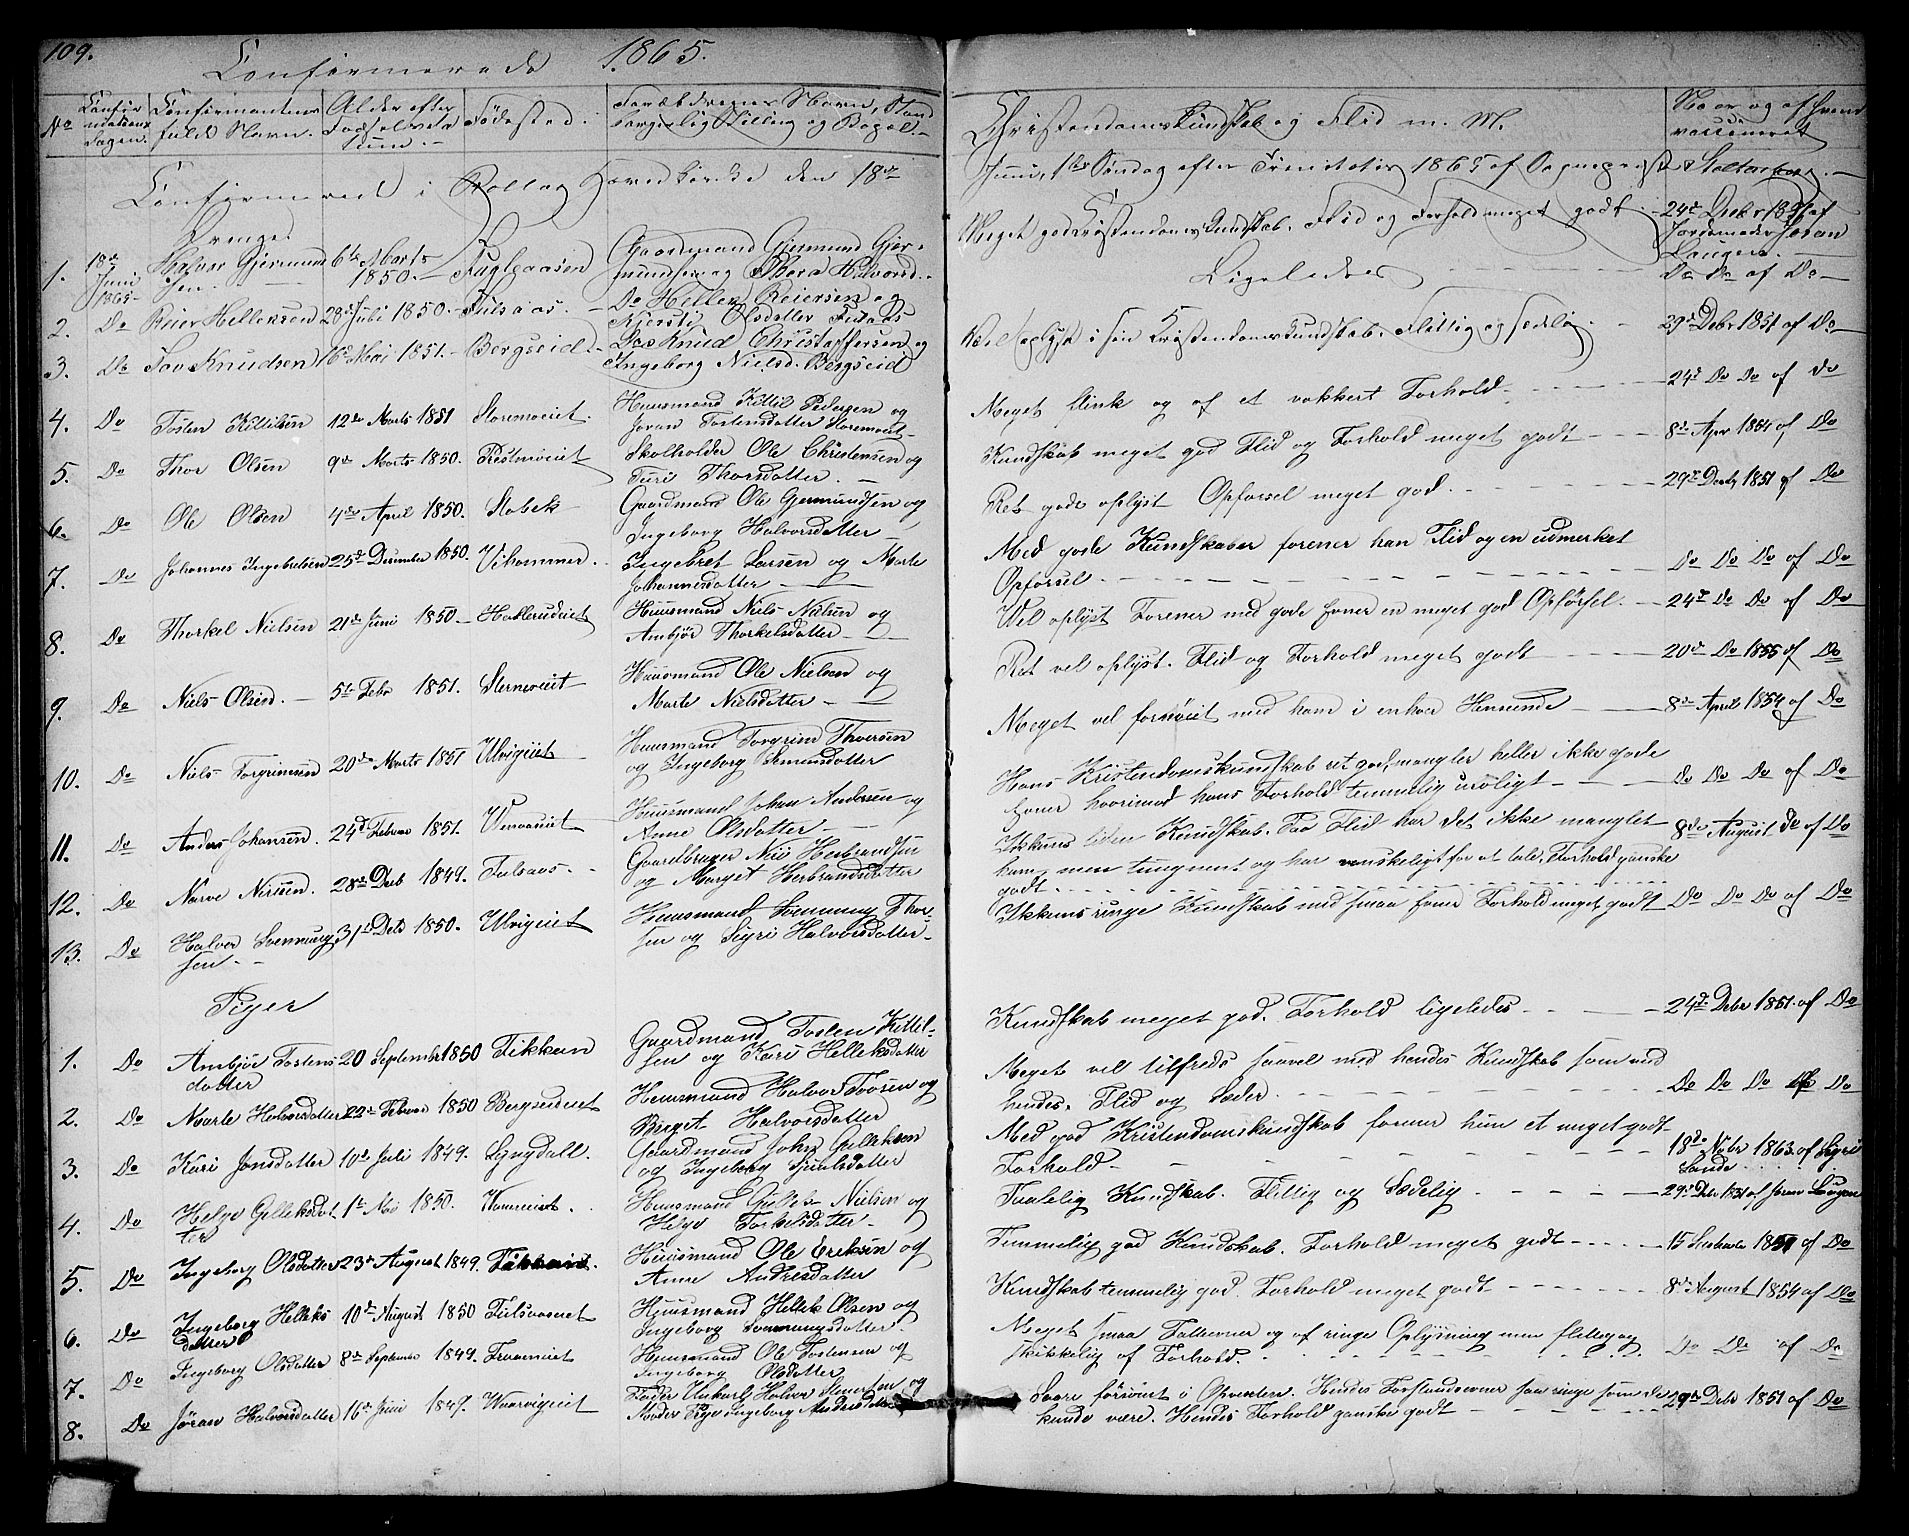 109.
Confirmerede 1865.
No
Confirmationsdagen.
Confirmantens fulde Navn.
Alder efter Fødselsdatum.
Fødested.
Forældrenes Navn, Stand borgerlig Stilling og Bopæl.
Christendomskundskab og Flid m. M.
Naar og af hvem vaccineret
Confirmeret i Rollag Hovedkirke den 18de Juni, 1ste Søndag efter Trinitatis 1865 af Sognepræst Stoltenberg.
Drenge.
1. 18de Juni 1865 Halvor Gjermundsen. 6te Marts 1850. Fuglaasen Gaardmand Gjermund Gjermundsen og Halvorsd. Meget god Cristendomskundskab. Flid og Forhold meget godt 24de Decbr 1851 af Jordemoder Joran Laugen.
2. Do Reier Helleksen 28de Juli 1850. Fulsaas. Do Hellek Reiersen og Kjersti Olsdatter Fulsaas Ligeledes Do Do af Do
3. Do Tov Knudsen 16de Mai 1851. Bergseid. Do Knud Christoffersen og Ingeborg Nielsd. Bergseid Vel oplyst i sin Cristendomskundskab. Flittig og sedelig. 29de Debr 1851 af Do
4. Do Tosten Kittilsen 12te Marts 1851 Storemoeiet. Huusmand Kittil Pedersen og Joran Tostensdatter Storemoeiet Meget flink og af et vakkert Forhold. 24de Do Do af do
5. Do Thor Olsen 9de Marts 1850. Skolholder Ole Christensen og Turi Thorsdatter. Kundskab meget god Flid og Forhold meget godt 8de Apr 1864 af Do
6. Do Ole Olsen 4de April 1850. Stobek Gaardmand Ole Gjermundsen og Ingeborg Halvorsdatter Ret gode oplyst Opførsel meget god. 29de Decbr 1851 af Do
7. Do Johannes Ingebretsen 25de December 1850. Vihammer. Ingebret Larsen og Marte Johannesdatter Med gode Kundskaber forener han Flid og en udmerket Opførsel. Do Do Do af Do
8. Do Thorkel Nielsen 21de Juni 1850. Huusmand Niels Nielsen og Ambjør Thorkelsdatter Vel oplyst Forener med gode Evner en meget god Opførsel. 24de Do Do af Do
9. Do Niels Olsen. 5te Febr 1851. Sterneeiet Huusmand Ole Nielsen og Marte Nielsdatter Ret vel oplyst. Flid og Forhold meget godt 20de Do 1855 af Do
10. Do Niels Torgrimsen 20de Marts 1851 Ulvigeiet Huusmand Torgrim Thorsen og Ingeborg Semundsdatter Meget vel fornøiet med ham i enhver Hensende 8de April 1854 af Do
11. Do Anders Johansen. 24de Februar 1851. Huusmand Johan Andersen og Anne Olsdatter Hans Kristendomskundskab ret god, mangler heller ikke gode Evner hvorimod hans Forhold temmelig uroligt Do Do Do af Do
12. Do Narve Nirisen. 28de Decb 1849. Fulsaas. Gaardbruger Niri Herbrandsen og Marget Herbrandsdatter Ukkuns liden Kundskab. Paa Flid har det ikke manglet ham, men tungnemt og har vanskeligt for at tale, Forhold ganske godt. 8de August do af Do
13. Do Halvor Svenningsen 31te Debr 1850. Ulvigeiet Huusmand Svenning Thorsen og Sigri Halvorsdatter Ukkuns ringe Kundskab med smaa Evner Forhold meget godt Do Do Do af Do
Piger
1. Do Ambjør Tostensdatter 20 September 1850 Fikkan Gaardmand Tosten Kittelsen og Kari Helleksdatter Kundskab meget god. Forhold ligeledes 24de Debr 1851. af Do
2. Do Marte Halvorsdatter 22de Februar 1850 Bergseideiet Huusmand Halvor Tovsen og Birget Halvorsdatter Meget vel tilfreds saavel med hendes Kundskab som med hendes Flid og Sæder. Do Do Do af Do
3. Do Kari Jonsdatter 10de Juli 1849. Lyngdall. Gaardmand John Gulliksen og Ingeborg Sjulsdatter Med god Kristendomskundskab forener hun et meget godt Forhold 18de Novbr 1863 af Sigri Sande
4. Do Helge Gulleksdatter 1te Mai 1850. Huusmand Gullek Nielsen og Helge Torkelsdatter Taalelig Kundskab. Flittig og Sædelig. 29de Debr 1851 af Joran Laugen
5. Do Ingeborg Olsdatter 23de August 1849. Fikkaneiet. Huusmand Ole Eriksen og Anne Andresdatter Temmelig god Kundskab. Forhold meget godt 15 September 1851 af Do
6. Do Ingeborg Helleksdatter 10de August 1850 Fulsaaseiet Huusmand Hellek Olsen og Ingeborg Svenningsdatter. Kundskab temmelig god. Forhold meget godt 8de August 1854 af Do
7. Do Ingeborg Olsdatter 8de September 1849. Huusmand Ole Tostensen og Ingeborg Olsdatter Meget smaa Talevner og af ringe Oplysning men flittig og skikkelig af Forhold. Do Do af Do
8. Do Jøran Halvorsdatter 16de Juni 1849. Fader Unkarl Halvor og Moder Pige Ingeborg Andersdatter kunde være. Hendes Forhold ganske godt 29de Debr 1851 af Do